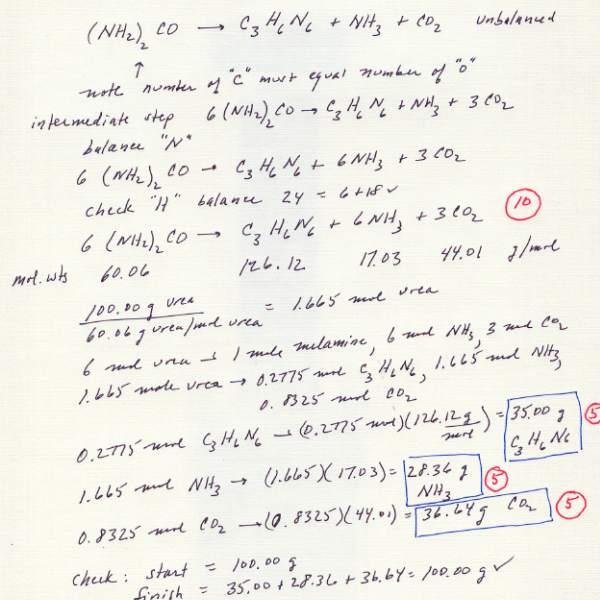 (NH₂)₂CO → C₃H₆N₆ + NH₃ + CO₂ unbalanced
↑
note number of "C" must equal number of "O"
intermediate step 6(NH₂)₂CO → C₃H₆N₆ + NH₃ + 3CO₂
balance "N"
6 (NH₂)₂CO → C₃H₆N₆ + 6NH₃ + 3CO₂
check "H" balance 24 = 6+18 ✓
6 (NH₂)₂CO → C₃H₆N₆ + 6NH₃ + 3CO₂ 10
mol. wts 60.06 126.12 17.03 44.01 g/mol
100.00 g urea
60.06 g urea/mol urea = 1.665 mol urea
6 mol urea → 1 mole melamine, 6 mol NH₃, 3 mol CO₂
1.665 mole urea → 0.2775 mol C₃H₆N₆, 1.665 mol NH₃,
0.8325 mol CO₂
0.2775 mol C₃H₆N₆ → (0.2775 mol)(126.12 g/mol) = 35.00 g C₃H₆N₆ 5
1.665 mol NH₃ → (1.665)(17.03) = 28.36 g NH₃ 5
0.8325 mol CO₂ → (0.8325)(44.01) = 36.64 g CO₂ 5
check: start = 100.00 g
finish = 35.00 + 28.36 + 36.64 = 100.00 g ✓